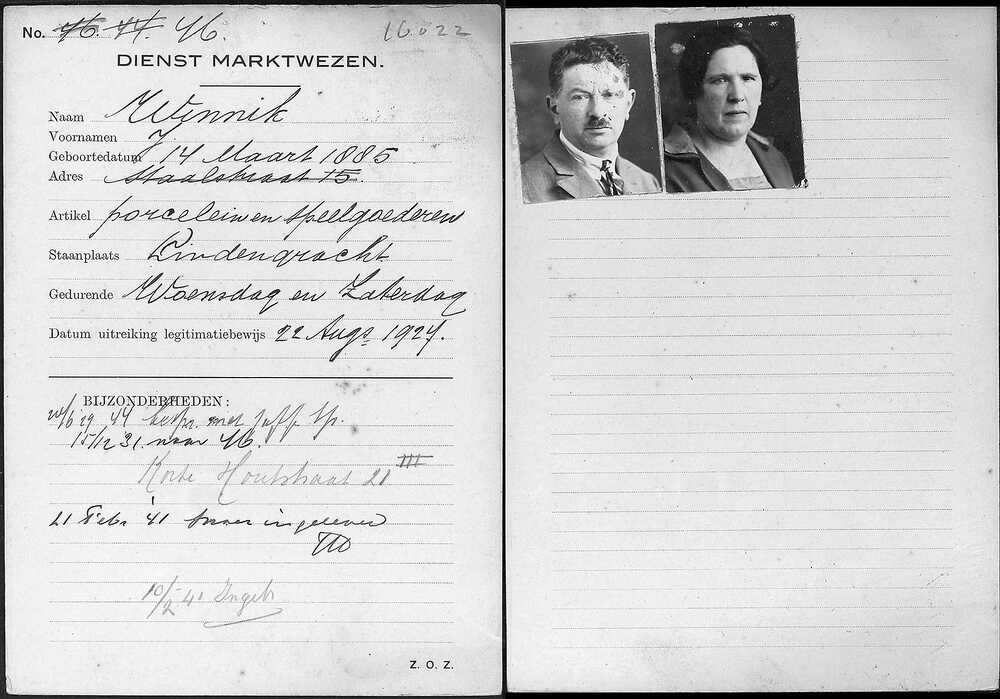 No. 46. 44. 46. 16022
DIENST MARKTWEZEN.
Naam Wennik
Voornamen J
Geboortedatum 14 Maart 1885
Adres Staalstraat 15.
Artikel porcelein en speelgoederen
Staanplaats Lindengracht
Gedurende Woensdag en Zaterdag
Datum uitreiking legitimatiebewijs 22 Augs 1924.
BIJZONDERHEDEN:
20/6 29 44 met
15/12 31. naar 46.
Korte Houtstraat 21 III
21 Febr '41 ingeleverd
10/2 41 Ingetr
Z. O. Z.